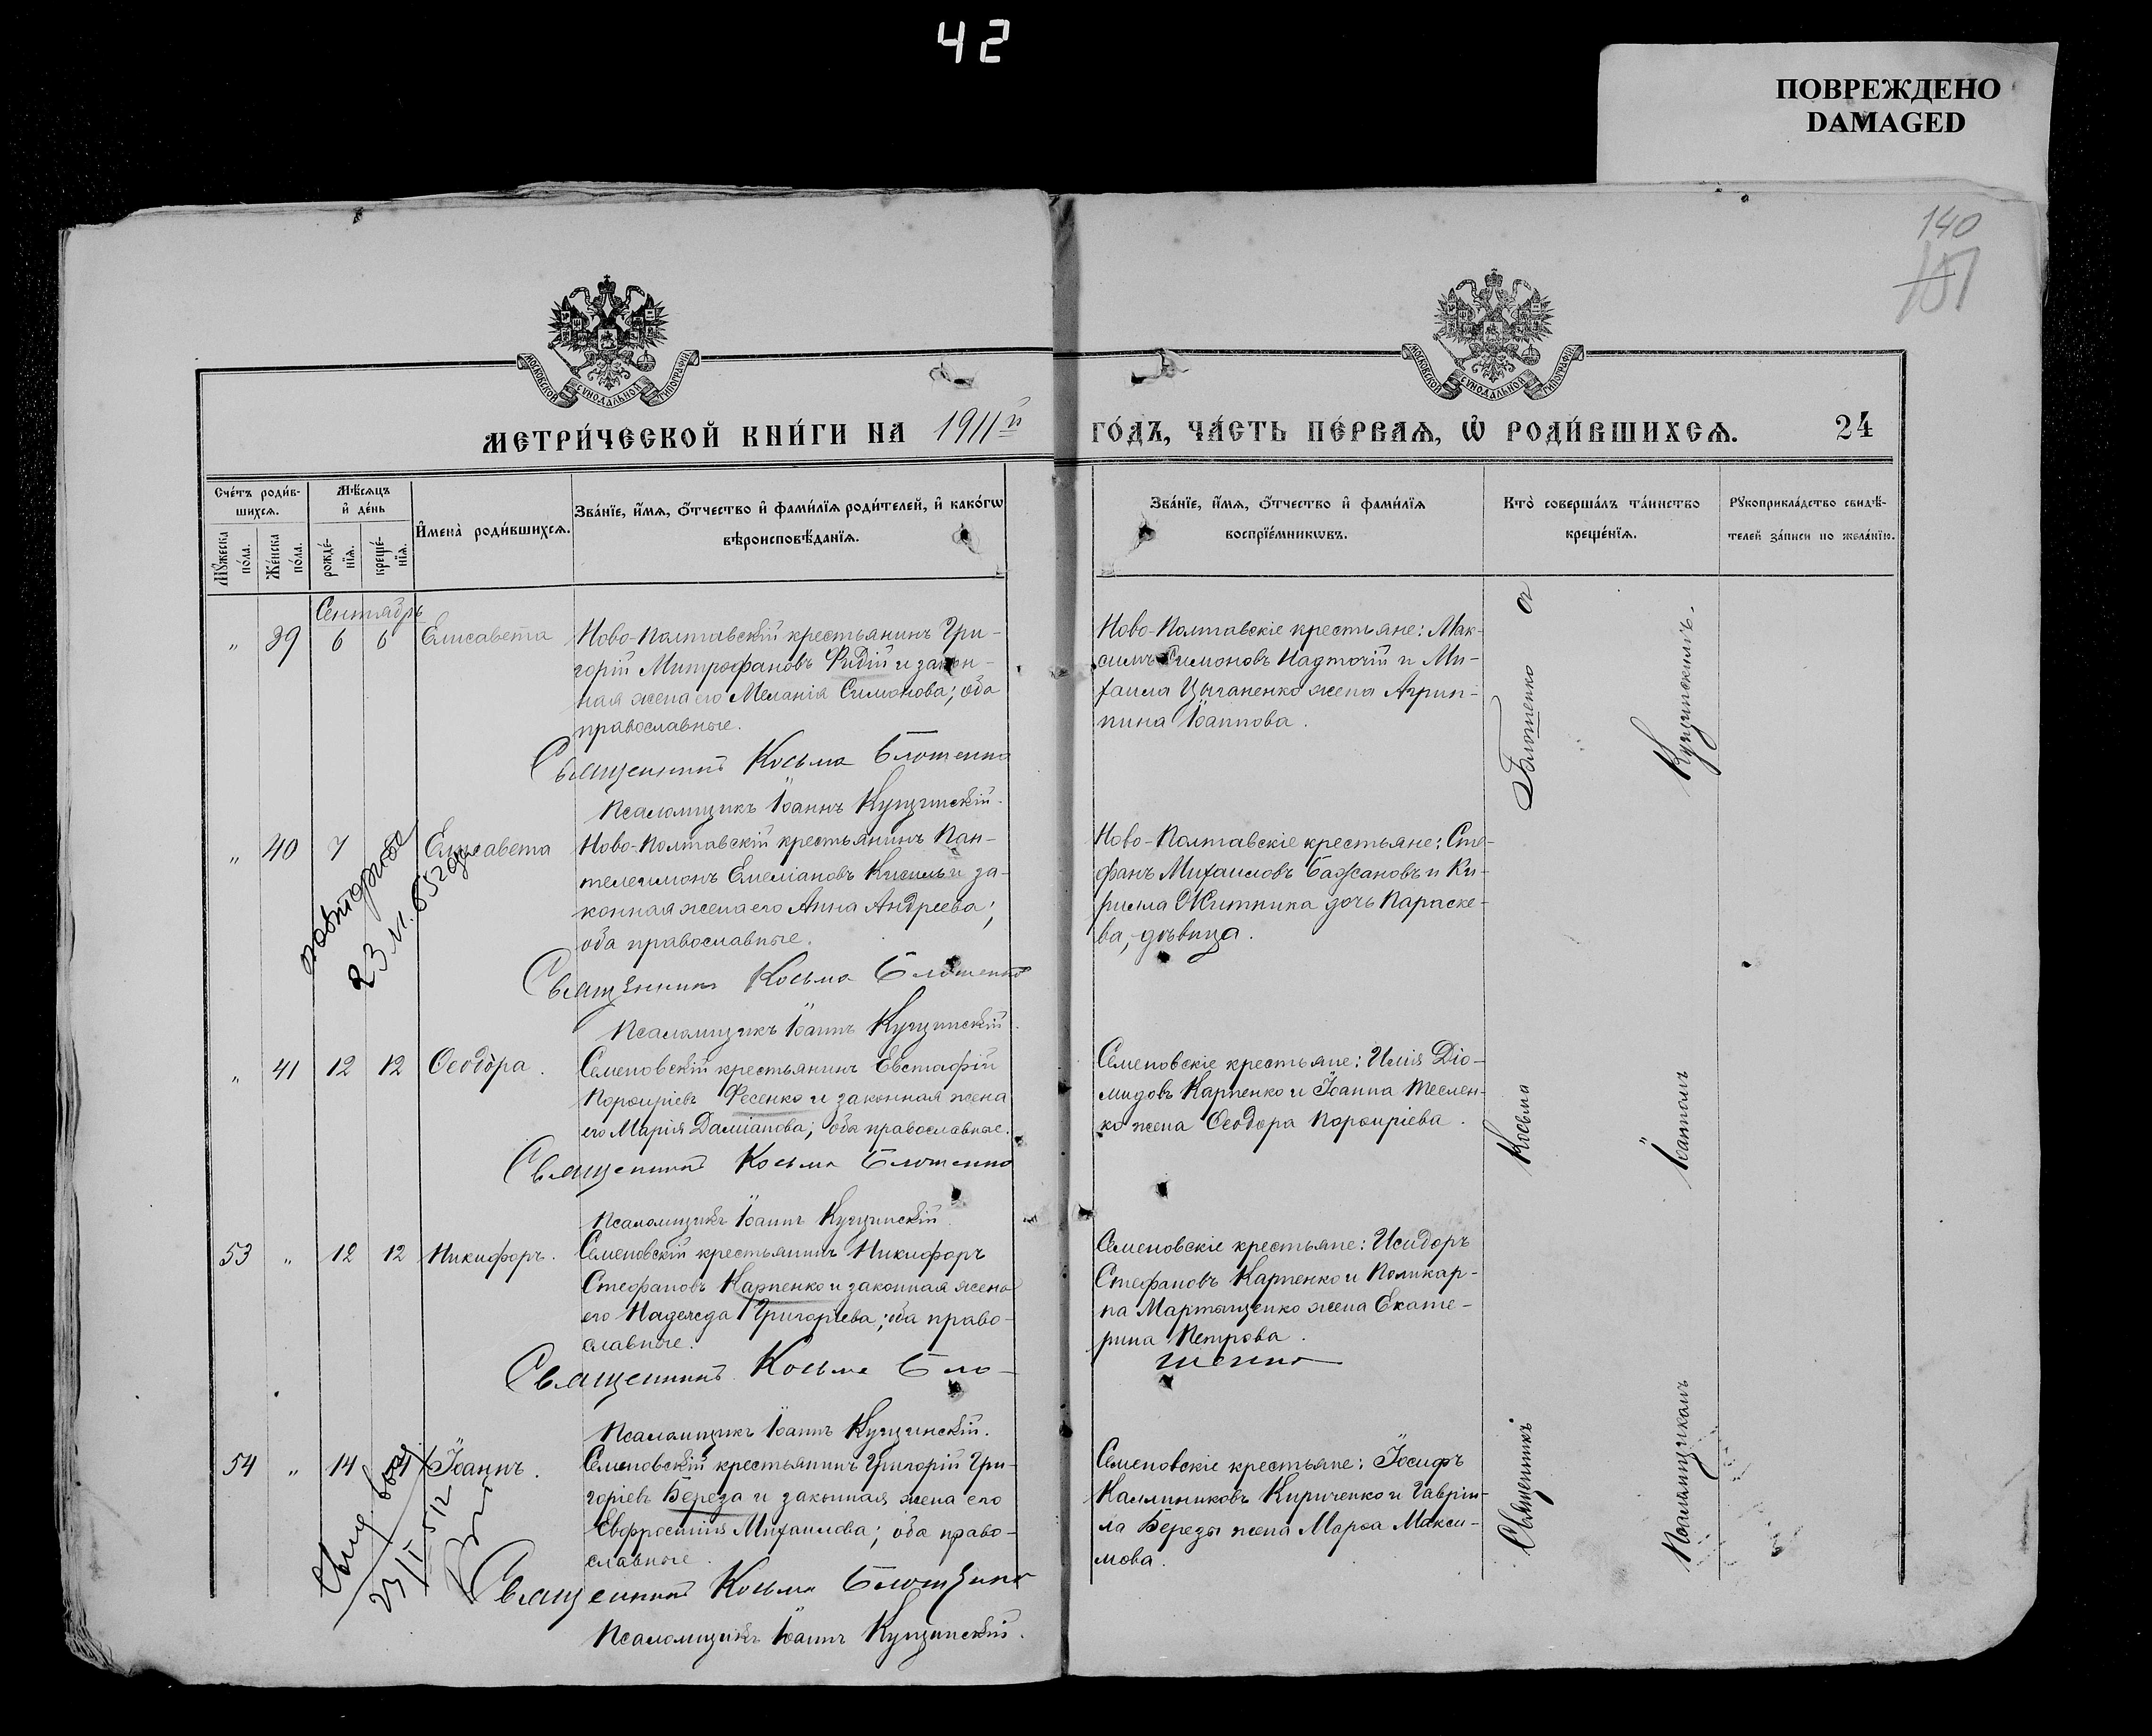 42
ПОВРЕЖДЕНО
DAMAGED
140
МОСКОВСКОЙ СѴНОДАЛЬНОЙ ТИПОГРАФІИ
МОСКОВСКОЙ СѴНОДАЛЬНОЙ ТИПОГРАФІИ
МЕТРИ́ЧЕСКОЙ КНИ́ГИ НА 1911й
ГО́ДЪ, ЧА́СТЬ ПЕ́РВАѦ, Ѡ҆ РОДИ́ВШИХСѦ. 24
Сче́тъ роди́в-
шихсѧ.
Мꙋ́жеска по́ла.
Же́нска по́ла.
Мѣ́сѧцъ
и҆ де́нь
рожде́-
нїѧ.
креще́-
нїѧ.
И҆мена̀ роди́вшихсѧ.
Зва́нїе, и҆́мѧ, ѻ҆́тчество и҆ фами́лїѧ роди́телей, и҆ како́гѡ
вѣроисповѣ́данїѧ.
Зва́нїе, и҆́мѧ, ѻ҆́тчество и҆ фами́лїѧ
воспрїе́мникѡвъ.
Кто̀ соверша́лъ та́инство
креще́нїѧ.
Рꙋкоприкла́дство свидѣ́-
телей за́писи по жела́нїю.
Сентябрь
" 39 6 6 Елисавета
Ново-Полтавскій крестьянинъ Гри-
горій Митрофановъ Фидій и закон-
ная жена его Меланія Симонова; оба
православные.
Священникъ Косьма Блошенко
Псаломщикъ Іоаннъ Кущинскій.
Ново-Полтавскіе крестьяне: Мак-
симъ Симоновъ Надточій и Ми-
хаила Цыганенко жена Агрип-
пина Іоаннова.
" 40 7 Елисавета
повторное
23.11.652
Ново-Полтавскій крестьянинъ Пан-
телеимонъ Емеліановъ Кисиль и за-
конная жена его Анна Андреева;
оба православные.
Священникъ Косьма Блошенко
Псаломщикъ Іоаннъ Кущинскій.
Ново-Полтавскіе крестьяне: Сте-
фанъ Михаиловъ Бажановъ и Ки-
рилла Житника дочь Параске-
ва, дѣвица.
" 41 12 12 Ѳеодора.
Семеновскій крестьянинъ Евстафій
Порфиріевъ Фесенко и законная жена
его Марія Даміанова; оба православные.
Священникъ Косьма Блошенко
Псаломщикъ Іоаннъ Кущинскій.
Семеновскіе крестьяне: Илія Діо-
мидовъ Карпенко и Іоанна Теслен-
ко жена Ѳеодора Порфиріева.
53 " 12 12 Никифоръ.
Семеновскій крестьянинъ Никифоръ
Стефановъ Карпенко и законная жена
его Надежда Григоріева; оба право-
славные.
Священникъ Косьма Бло-
шенко
Псаломщикъ Іоаннъ Кущинскій.
Семеновскіе крестьяне: Исидоръ
Стефановъ Карпенко и Поликар-
па Мартыщенко жена Екате-
рина Петрова.
54 " 14 Іоаннъ.
Семеновскій крестьянинъ Григорій Гри-
горіевъ Береза и законная жена его
Евфросинія Михаилова; оба право-
славные.
Священникъ Косьма Блошенко
Псаломщикъ Іоаннъ Кущинскій.
Семеновскіе крестьяне: Іосифъ
Каллиниковъ Кириченко и Гаврі-
ла Березы жена Марѳа Макси-
мова.
Священникъ Косьма Блошенко съ
Псаломщикомъ Іоанномъ Кущинскимъ.